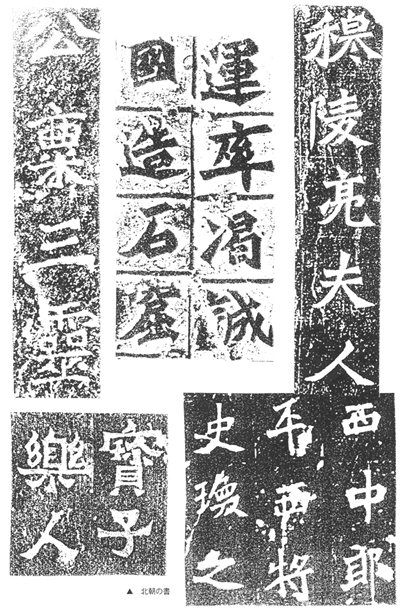 穆陵亮夫人
運率渴誠
國造石窟
公稟三靈
西中郎
平西將
史瓊之
寶子
樂人
▲ 北朝の書